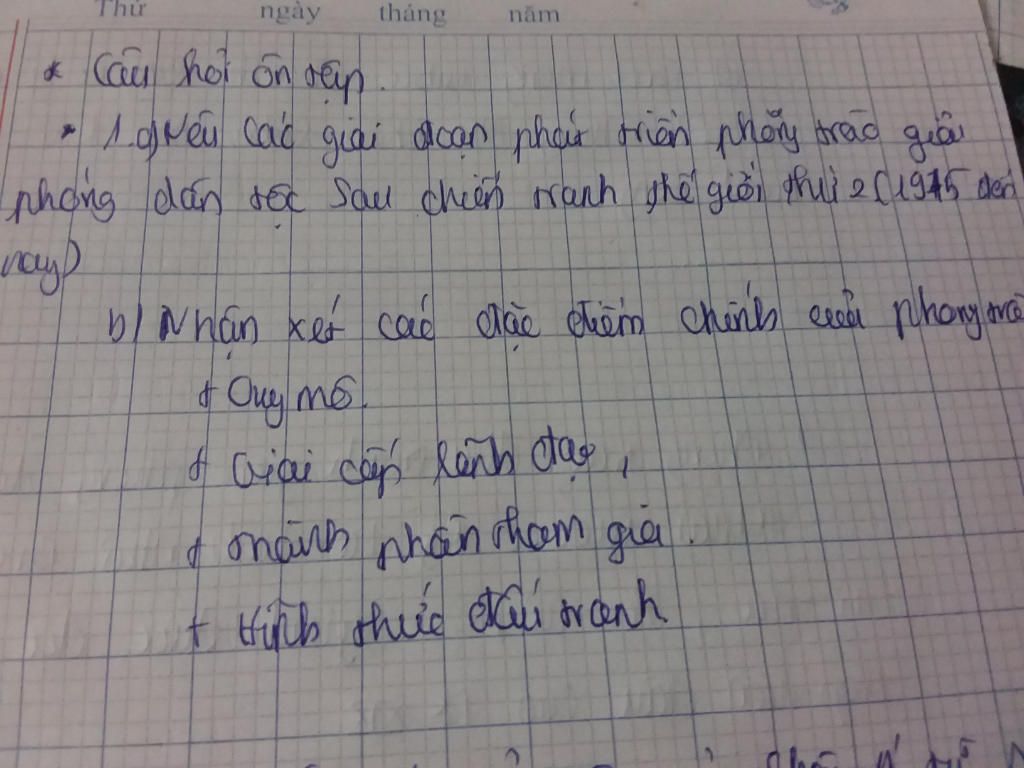 Thứ ngày tháng năm
* Câu hỏi ôn tập.
- 1.a) Nêu các giai đoạn phát triển phong trào giải
phóng dân tộc sau chiến tranh thế giới thứ 2 (1945 đến
nay)
b) Nhận xét các đặc điểm chính của phong trào
+ Quy mô.
+ Giai cấp lãnh đạo,
+ thành phần tham gia.
+ Hình thức đấu tranh